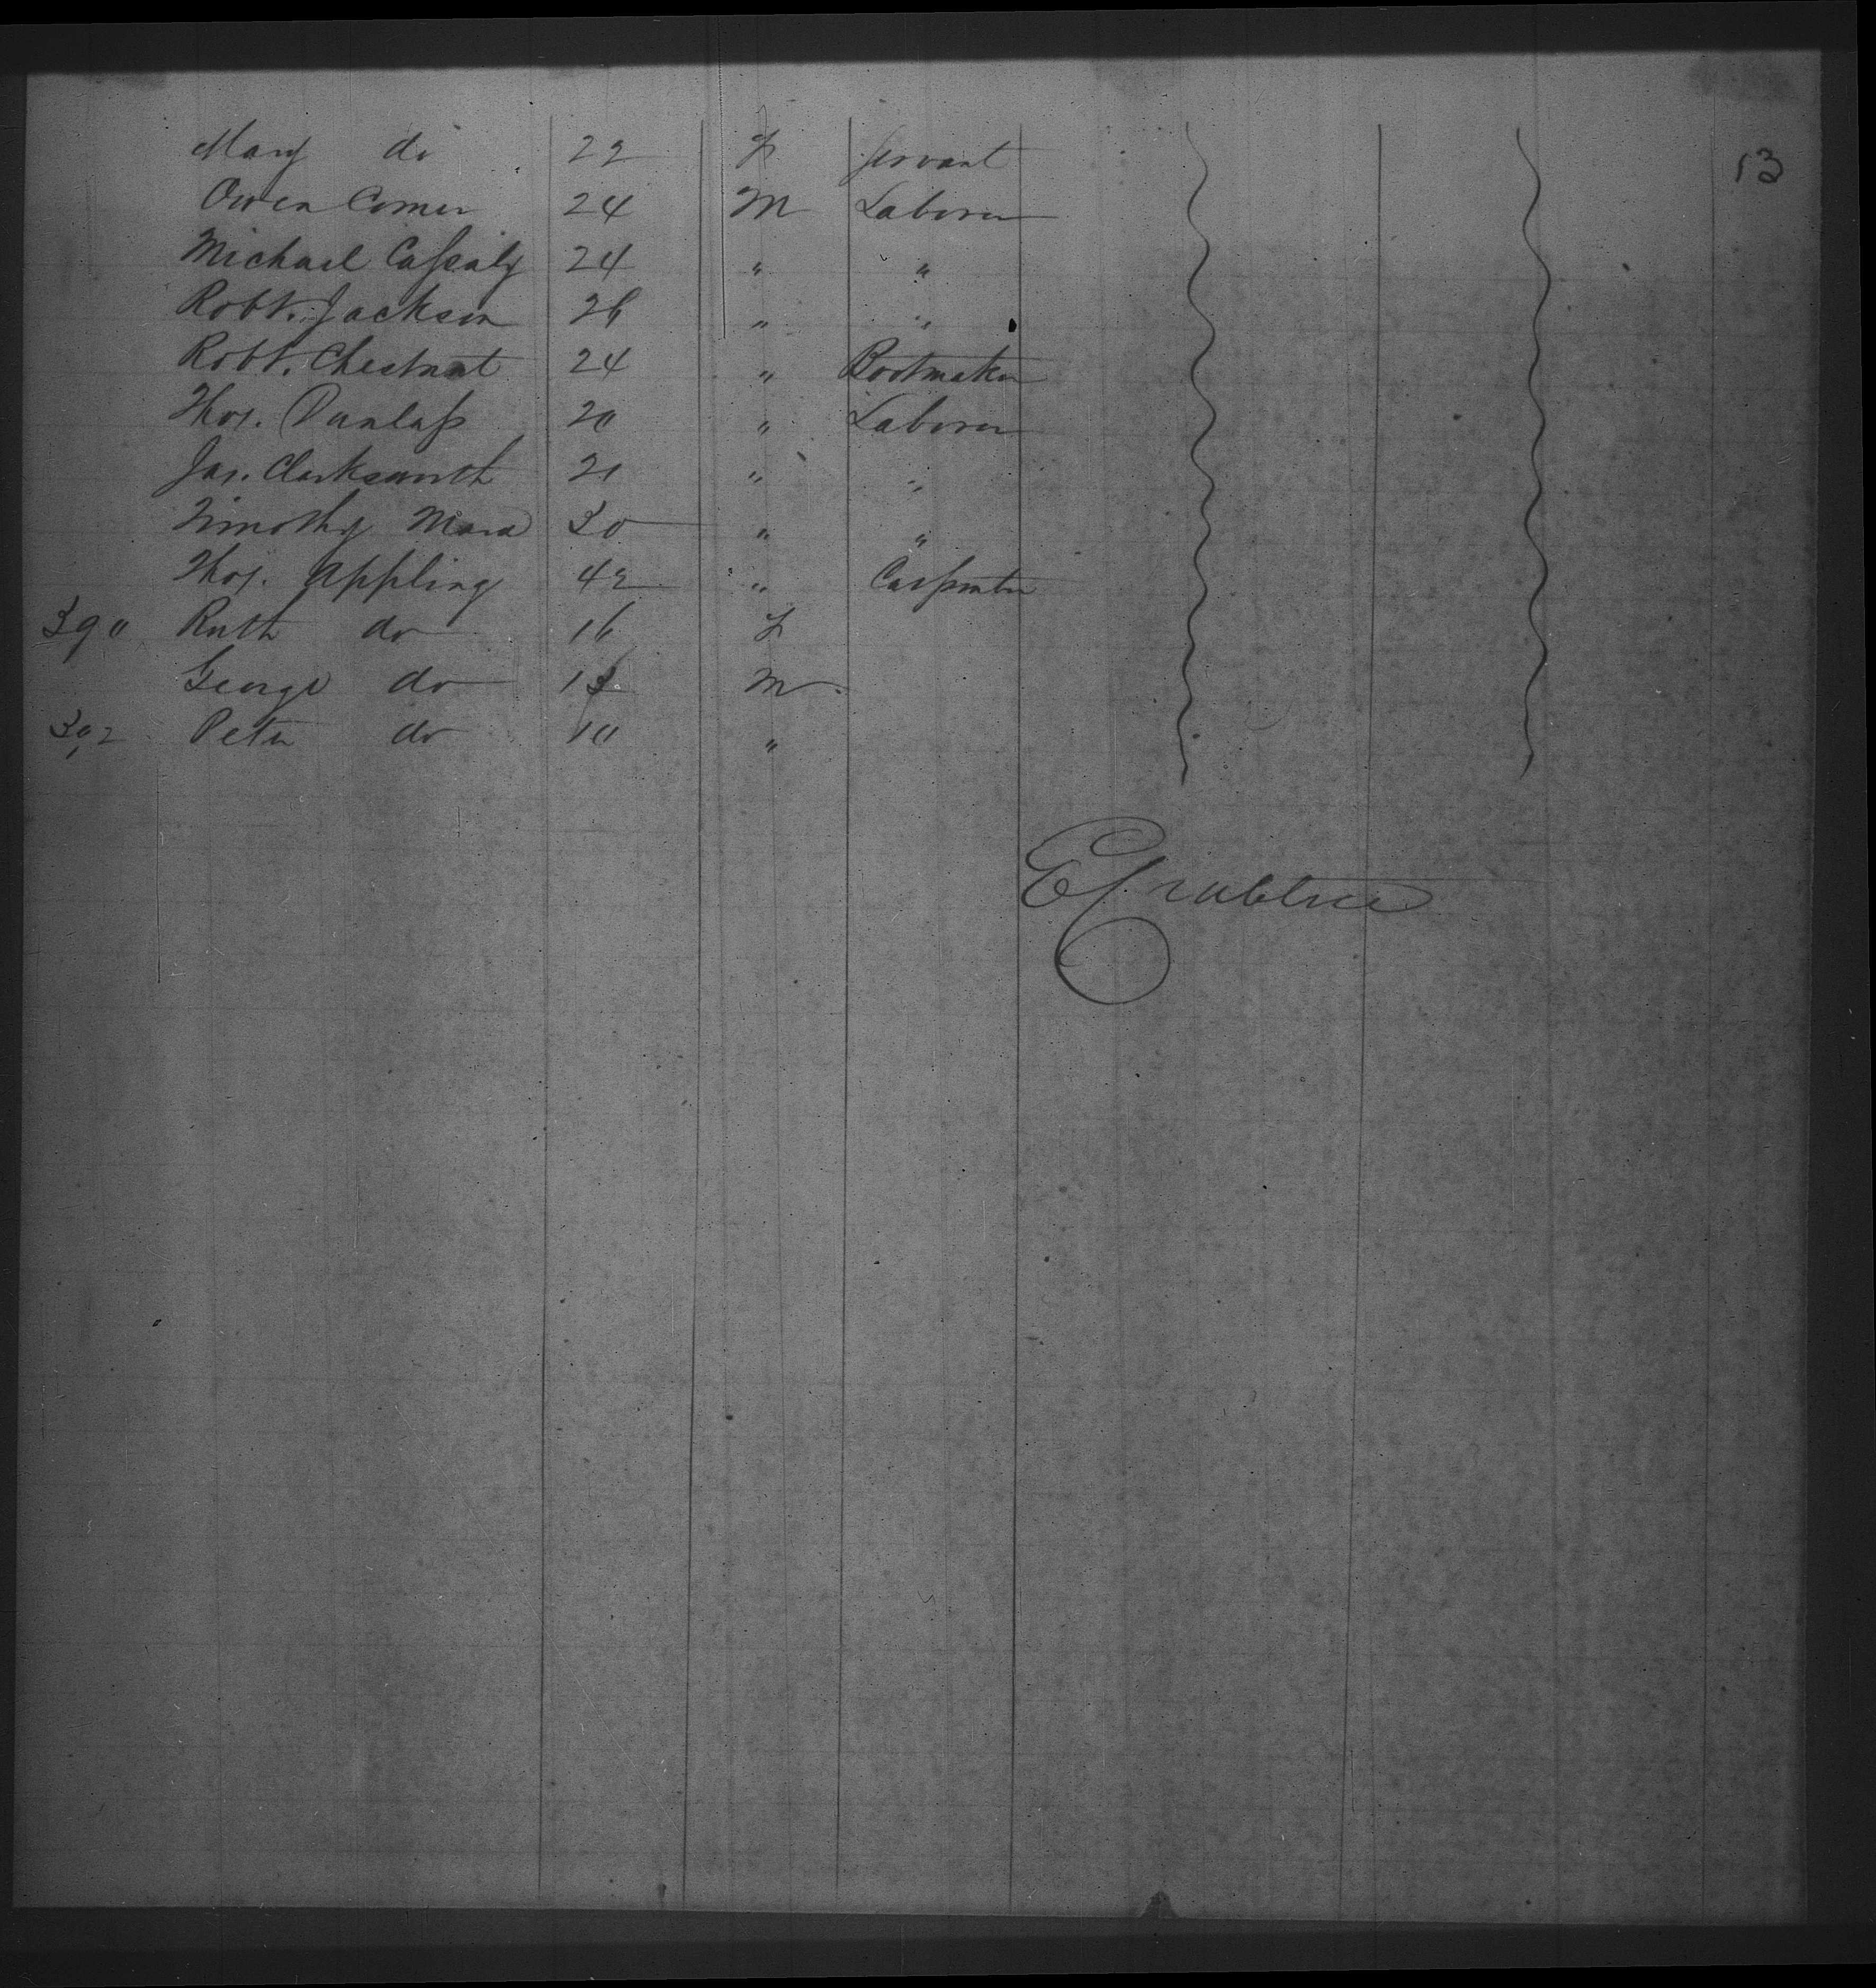 13
Mary do 22 F Servant
Owen Comer 24 M Laborer
Michael Cassaly 24 " "
Robt. Jackson 26 " "
Robt. Chestnut 24 " Bootmaker
Thos. Dunlap 20 " Laborer
Jas. 21 " "
Timothy Mara 30 " "
Thos. Appling 42 " Carpenter
390 Ruth do 16 F
George do 13 M
392 Peter do 10 "
E Crabtree